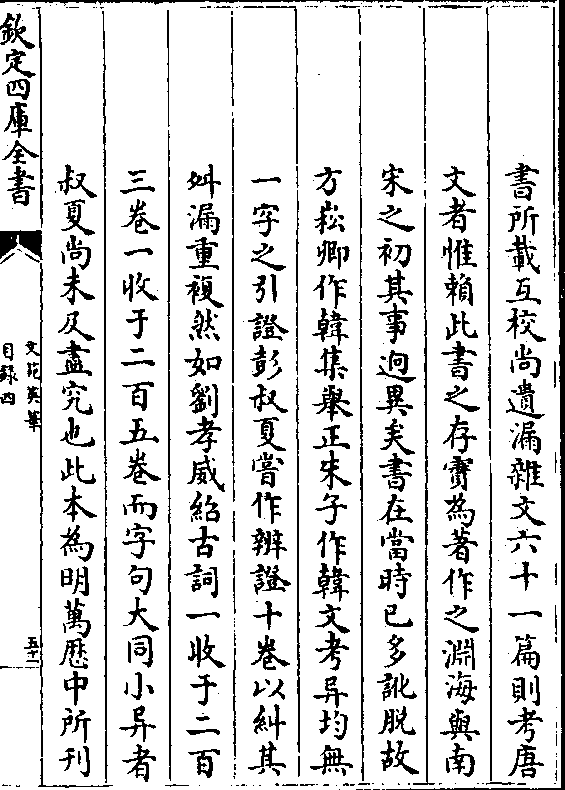 書所載互校尚遺漏雜文六十一篇則考唐
文者惟賴此書之存實為著作之淵海與南
宋之初其事迥異矣書在當時已多訛脱故
方崧卿作韓集舉正朱子作韓文考异均無
一字之引證彭叔夏嘗作辨證十卷以糾其
舛漏重複然如劉孝威紹古詞一收于二百
三卷一收于二百五卷而字句大同小异者
叔夏尚未及盡究也此本為明萬厯中所刋
欽定四庫全書
文苑英華
目錄四